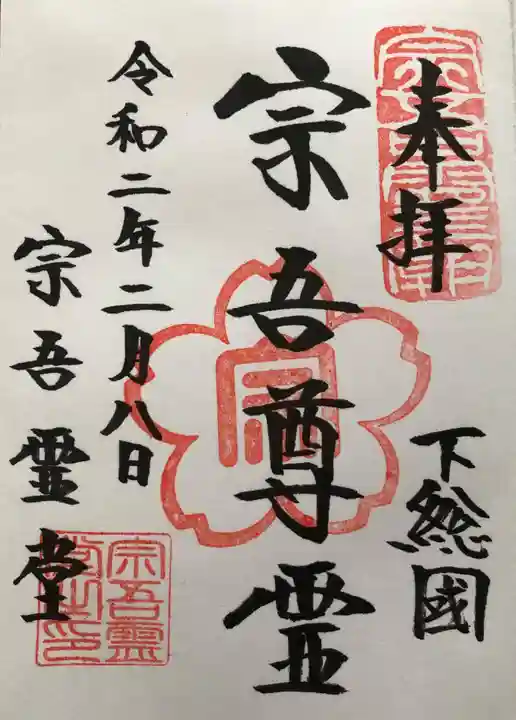 奉拝
下総國
宗吾尊霊
令和二年二月八日
宗吾霊堂
宗吾霊堂之印